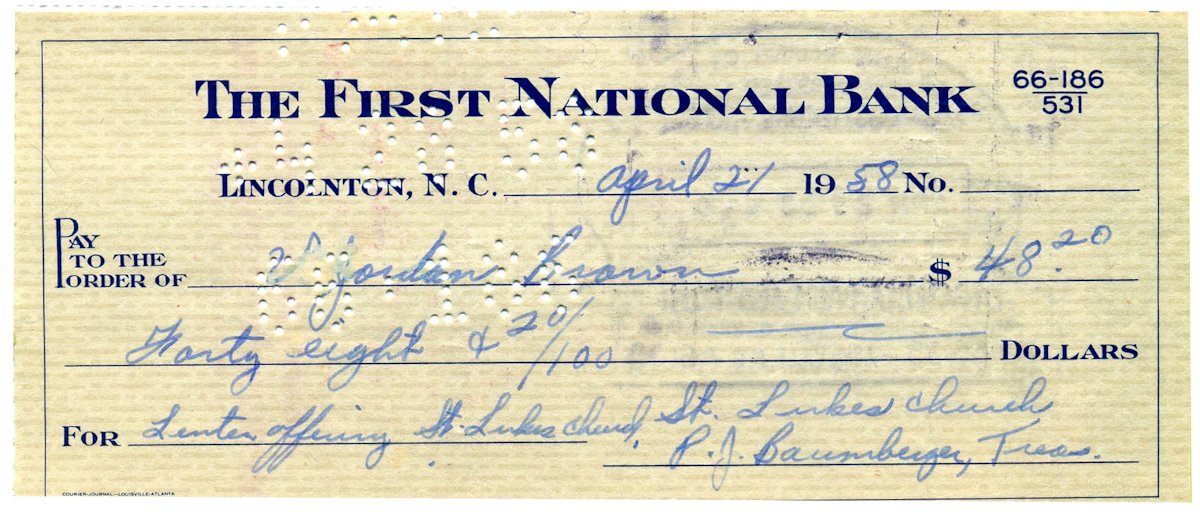 THE FIRST NATIONAL BANK
66-186
531
LINCOLNTON, N. C. April 21 1958 No.
PAY
TO THE
ORDER OF Jordan Brown $ 48.20
Forty eight & 20/100 DOLLARS
FOR Lenten offering St. Lukes church, St. Lukes church
P. J. Baumberger, Treas.
COURIER-JOURNAL—LOUISVILLE-ATLANTA